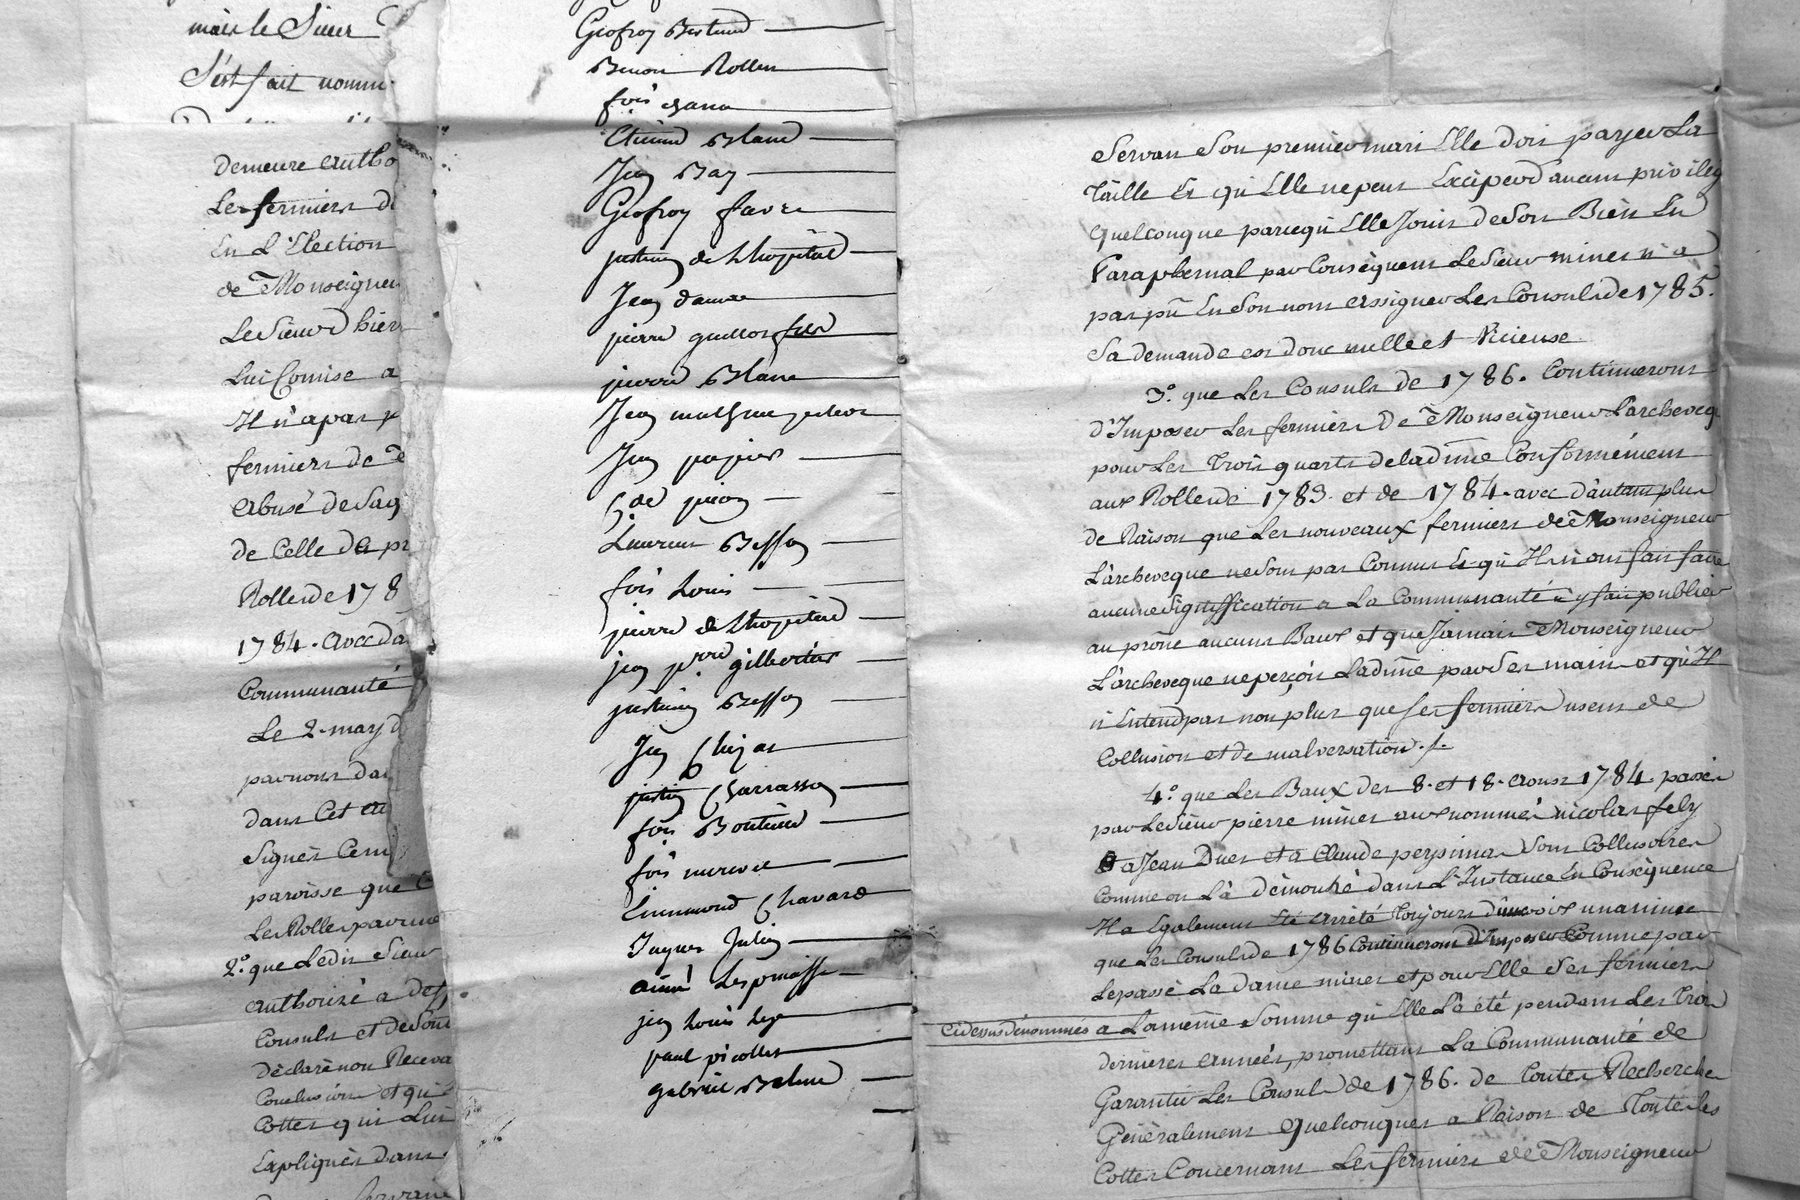 mais le Sieur
S'est fait nomm
Demeure autho
Les fermiers d
En L'Election
de Monseigneu
Le Sieur hier
Lui Comise a
Il n'a pas
fermiers de
Abusé de Sa
de Celle de pr
Rolle de 178
1784. avec da
Communauté
Le 2. may d
parnons da
dans Cet
Signés
paroisse que
Les Rolles par
2.° que Ledit Sieur
authorizé a
Consuls et de Son
Déclaré non Receva
Conclusion et qui
Cottes qui Lui
Expliqués dans
Geofroy Bertrand
Benoi Rollin
fois
Etienne Blanc
Jean Bay
Geofroy favre
justin de Lhopital
Jean
pierre guillot fils
pierre Blanc
Jean
Jean
Laurens Besson
fois Louis
pierre de Lhopital
jean pierre gilbertas
justin Besson
Jean Chizat
justin Charrasson
fois Bonteind
fois
Chavard
Jaques Julien
aimé Lespinasse
jean Louis
paul picollet
gabriel Balme
Servan Son premier mari Elle doit payer La
Taille Et qu'Elle ne peut Exciper d'aucun privileg
quelconque parcequ'Elle Jouit de Son Bien En
Paraphernal par Conséquent Le Sieur minet n'a
pas pû En Son nom assigner Les Consuls de 1785.
Sa demande est donc nulle et Vicieuse
3.° que Les Consuls de 1786. Continueront
d'Imposer Les fermiers de Monseigneur L'archeveq
pour Les Trois quarts de la dime Conformément
aux Rolles de 1783. et de 1784. avec d'autant plus
de Raison que Les nouveaux fermiers de Monseigneur
L'archeveque ne Sont pas Connus Et qu'Ils n'ont fait faire
aucune Signiffication a La Communauté n'y fait publier
au prône aucuns Baux et que Jamais Monseigneur
L'archeveque ne perçoit La dime par Ses mains et qu'Il
n'Entend pas non plus que Ses fermiers usent de
Collusion et de malversation.
4.° que Les Baux des 8. et 18. aoust 1784 passés
par Le Sieur pierre minet aux nommés nicolas fely
a Jean Duet et a Claude perpinia Sont Collusoires
Comme on L'a démontré dans L'Instance En Conséquence
Il a Egalement Eté arrêté Toujours d'une voix unanime
que Les Consuls de 1786 Continueront d'Imposer Comme par
Le passé La dame minet et pour Elle Ses fermiers
Cidessus dénommés a La même Somme qu'Elle L'a été pendant Les Trois
dernieres années, promettant La Communauté de
Garantir Les Consuls de 1786. de toutes Recherches
Généralement quelconques a Raison de Toutes les
Cottes Concernant Les fermiers de Monseigneur